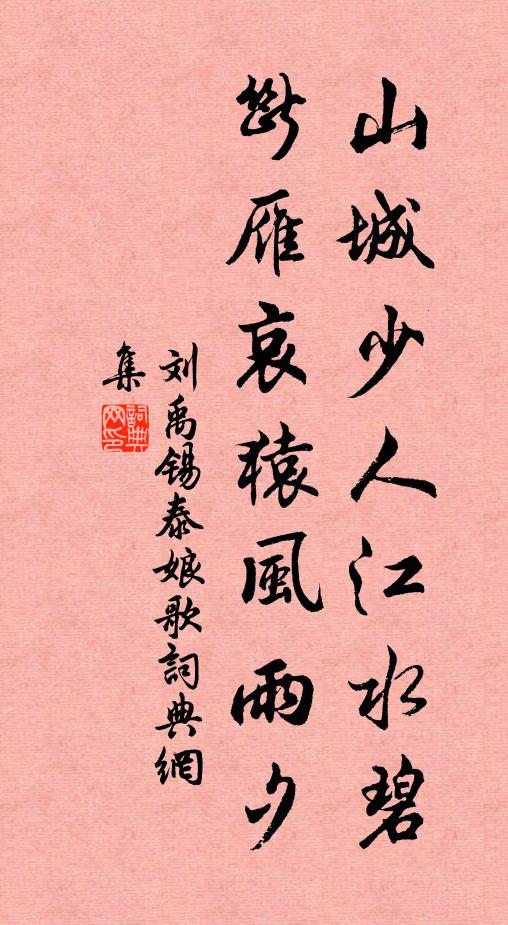 山城少人江水碧
斷雁哀猿風雨夕
刘禹锡泰娘歌詞典網
集
詞典
网印